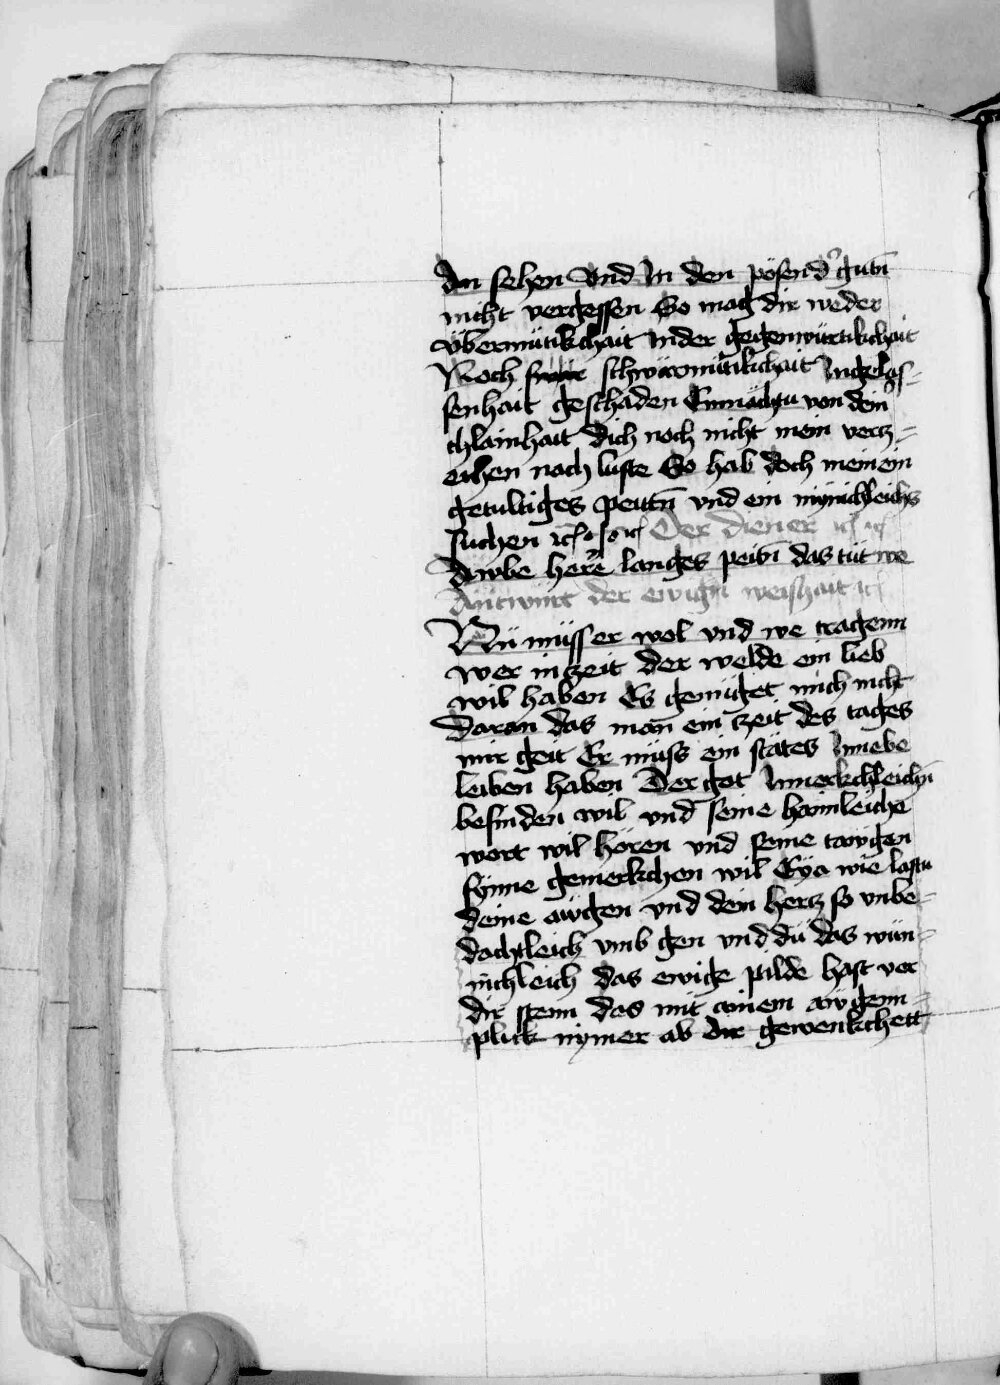 An sehen Vnd In den pösen der̄ gutn̄
nicht vergessen So mag dir weder
Vbermütikchait Inder gegenwürtikchait
Noch schwärmütikchait Ingelas-
senhait geschaden Enmachtu von dein̄
chlainhait dich noch nicht mein vercz-
eihen nach luste So hab doch mein ein
getultiges peitn̄ vnd ein mÿnichleichs
suchen Der diener
Awbe herre langes peitn̄ das tüt we
Antwürt der ewign̄ weishait
Nu müss er wol vnd we tragenn
wer in zeit der welde ein lieb
wil haben Es genüget mich nicht
Daran das man ein zeit des tages
mir geit Er müss ein stätes Innebe
leiben haben Der got Innerkchleichn̄
befinden wil vnd seine haimleiche
wort wil hören vnd seine tawgen
sÿnne gemerkchen wil Eÿa wie lastu
deine awgen vnd dein hercz so vnbe-
dachtleich vmb gen vnd du das wün-
nichleich das ewige pilde hast vor
dir stenn das mit ainem awgenn-
plick nÿmer ab dir gewenkchett